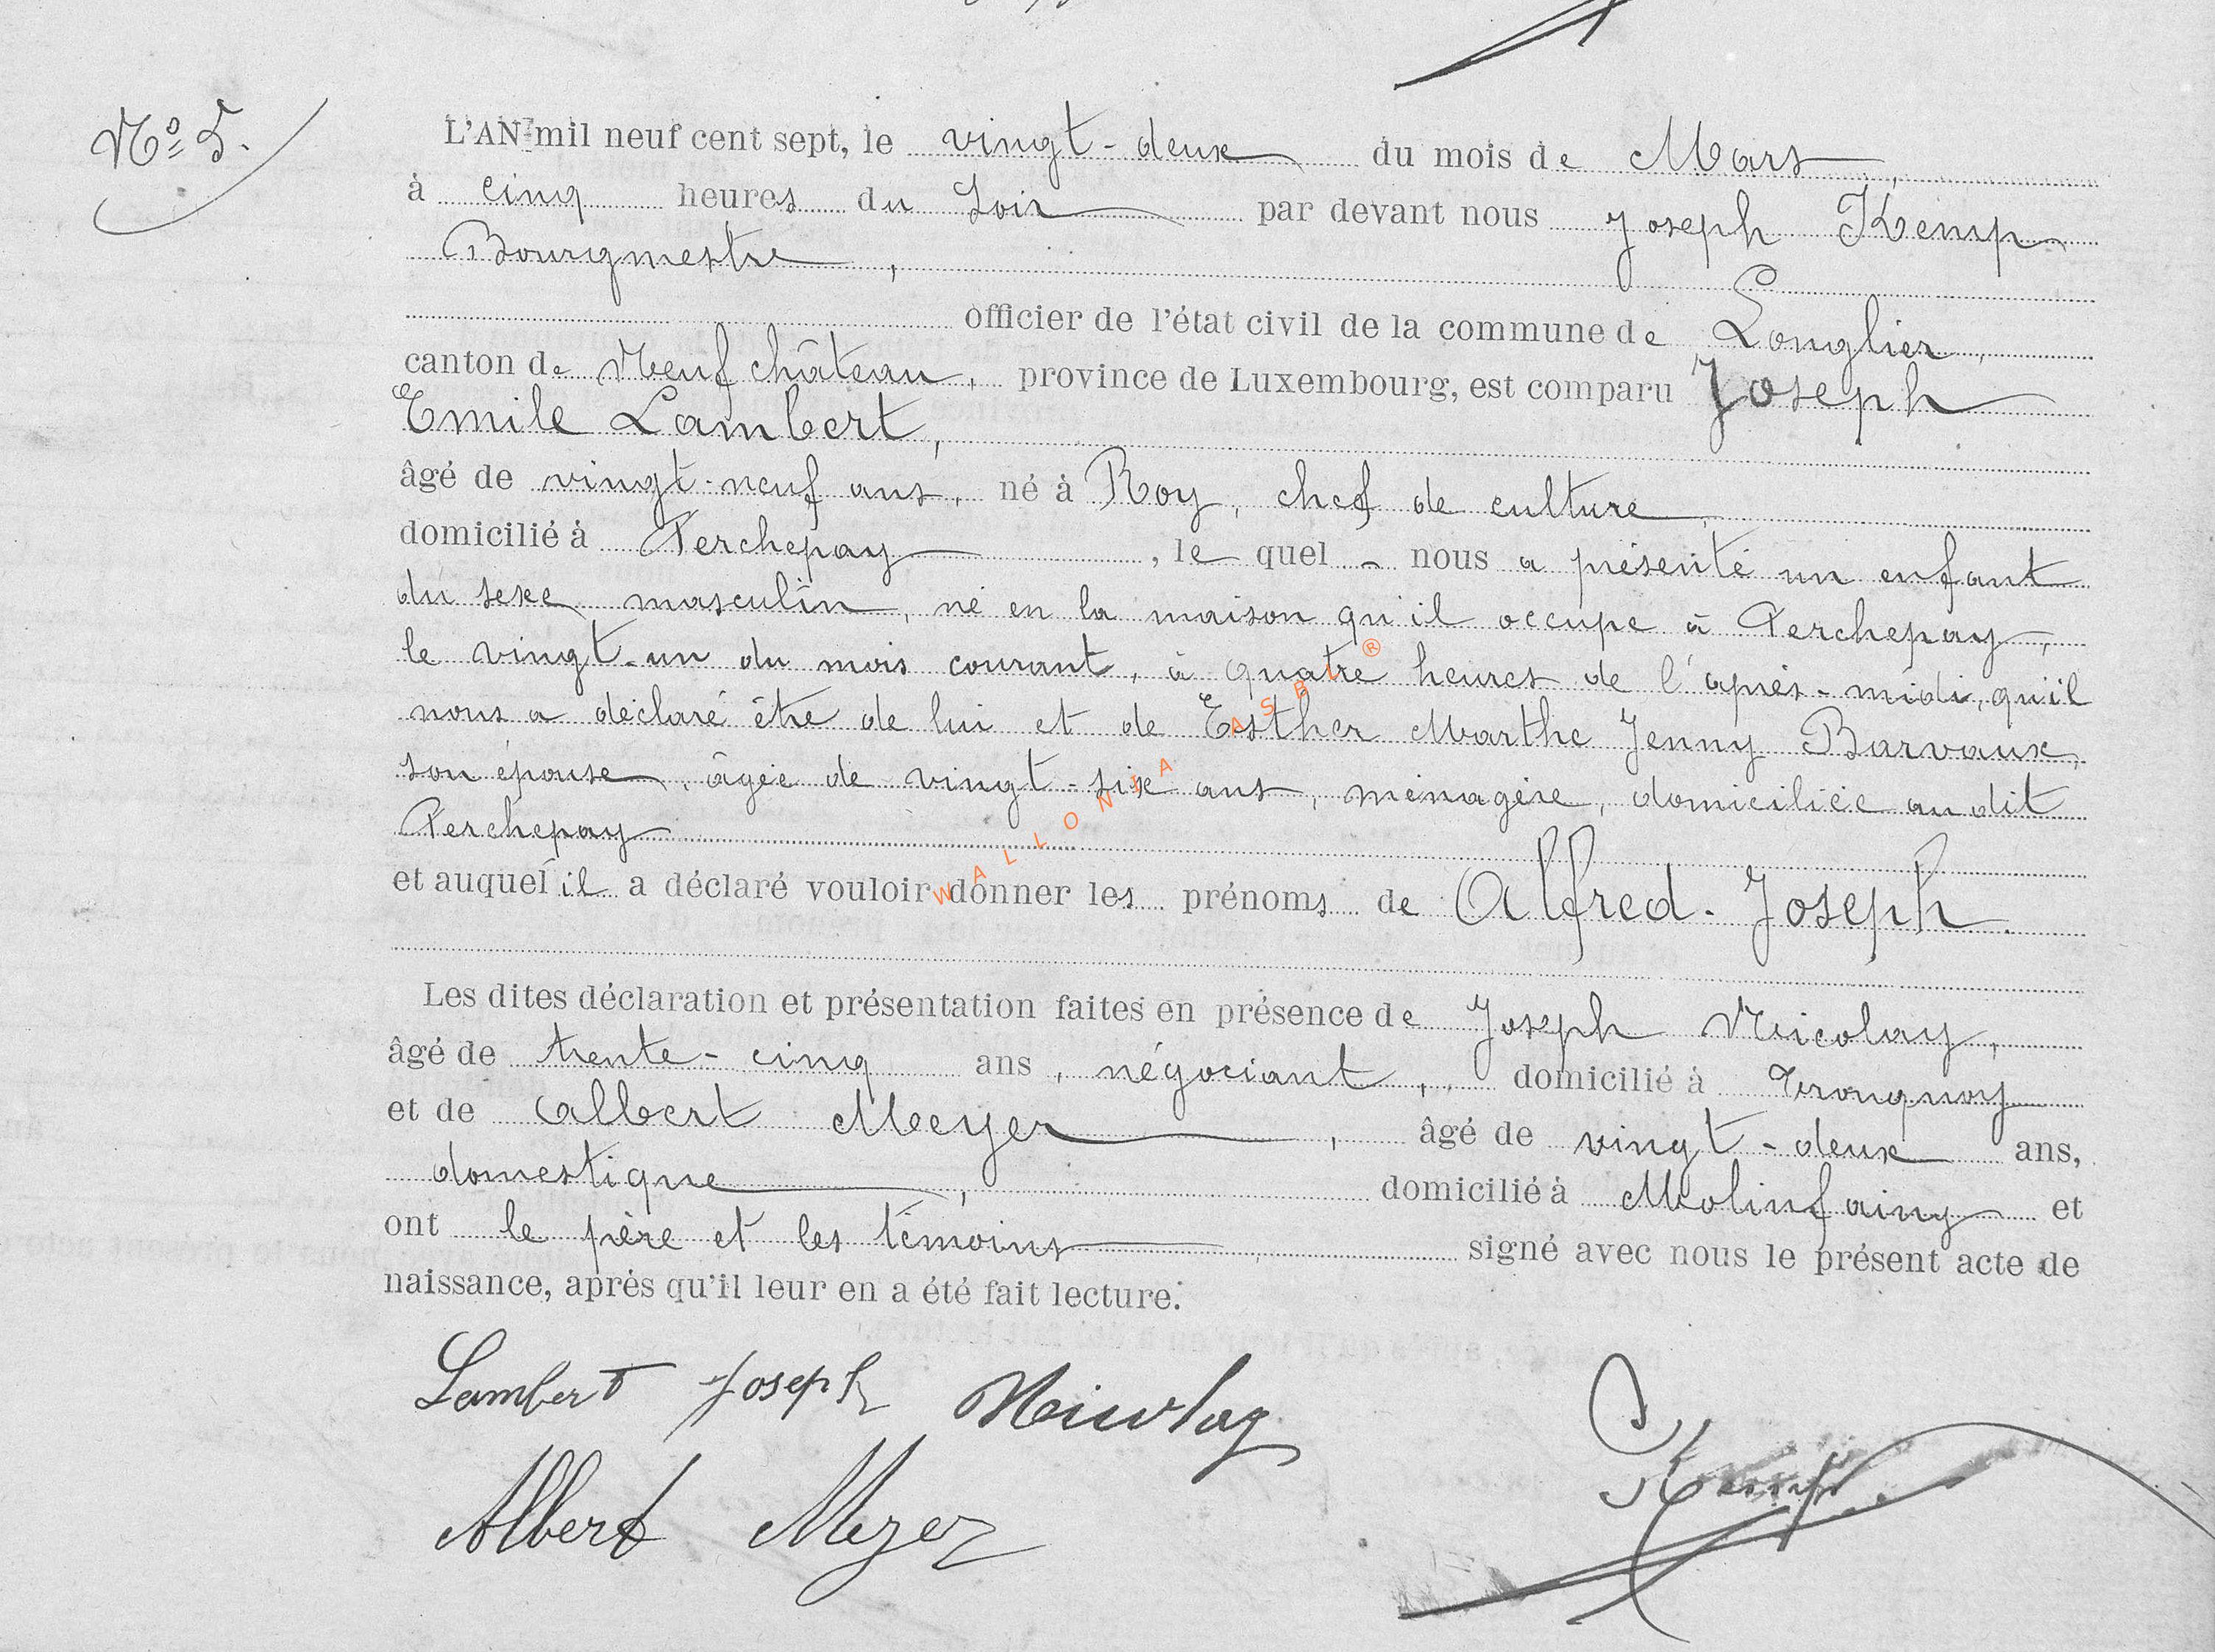 Nº 5.
L'AN mil neuf cent sept, le vingt-deux du mois de Mars,
à cinq heures du Soir par devant nous Joseph Kemp
Bourgmestre,
officier de l'état civil de la commune de Longlier,
canton de Neufchâteau, province de Luxembourg, est comparu Joseph
Emile Lambert,
âgé de vingt-neuf ans, né à Roy, chef de culture,
domicilié à Ferchepay, le quel nous a présenté un enfant
du sexe masculin, né en la maison qu'il occupe à Ferchepay,
le vingt-un du mois courant, à quatre heures de l'après-midi, qu'il
nous a déclaré être de lui et de Esther Marthe Jenny Barvaux,
son épouse, âgée de vingt-six ans, ménagère, domiciliée au dit
Ferchepay
et auquel il a déclaré vouloir donner les prénoms de Alfred-Joseph.
Les dites déclaration et présentation faites en présence de Joseph Nicolay,
âgé de trente-cinq ans, négociant, domicilié à Tronquoy
et de Albert Meyer, âgé de vingt-deux ans,
domestique, domicilié à Molinfaing et
ont le père et les témoins signé avec nous le présent acte de
naissance, après qu'il leur en a été fait lecture.
Lambert Joseph Nicolay
Kemp
Albert Meyer
WALLONIA ASBL ®